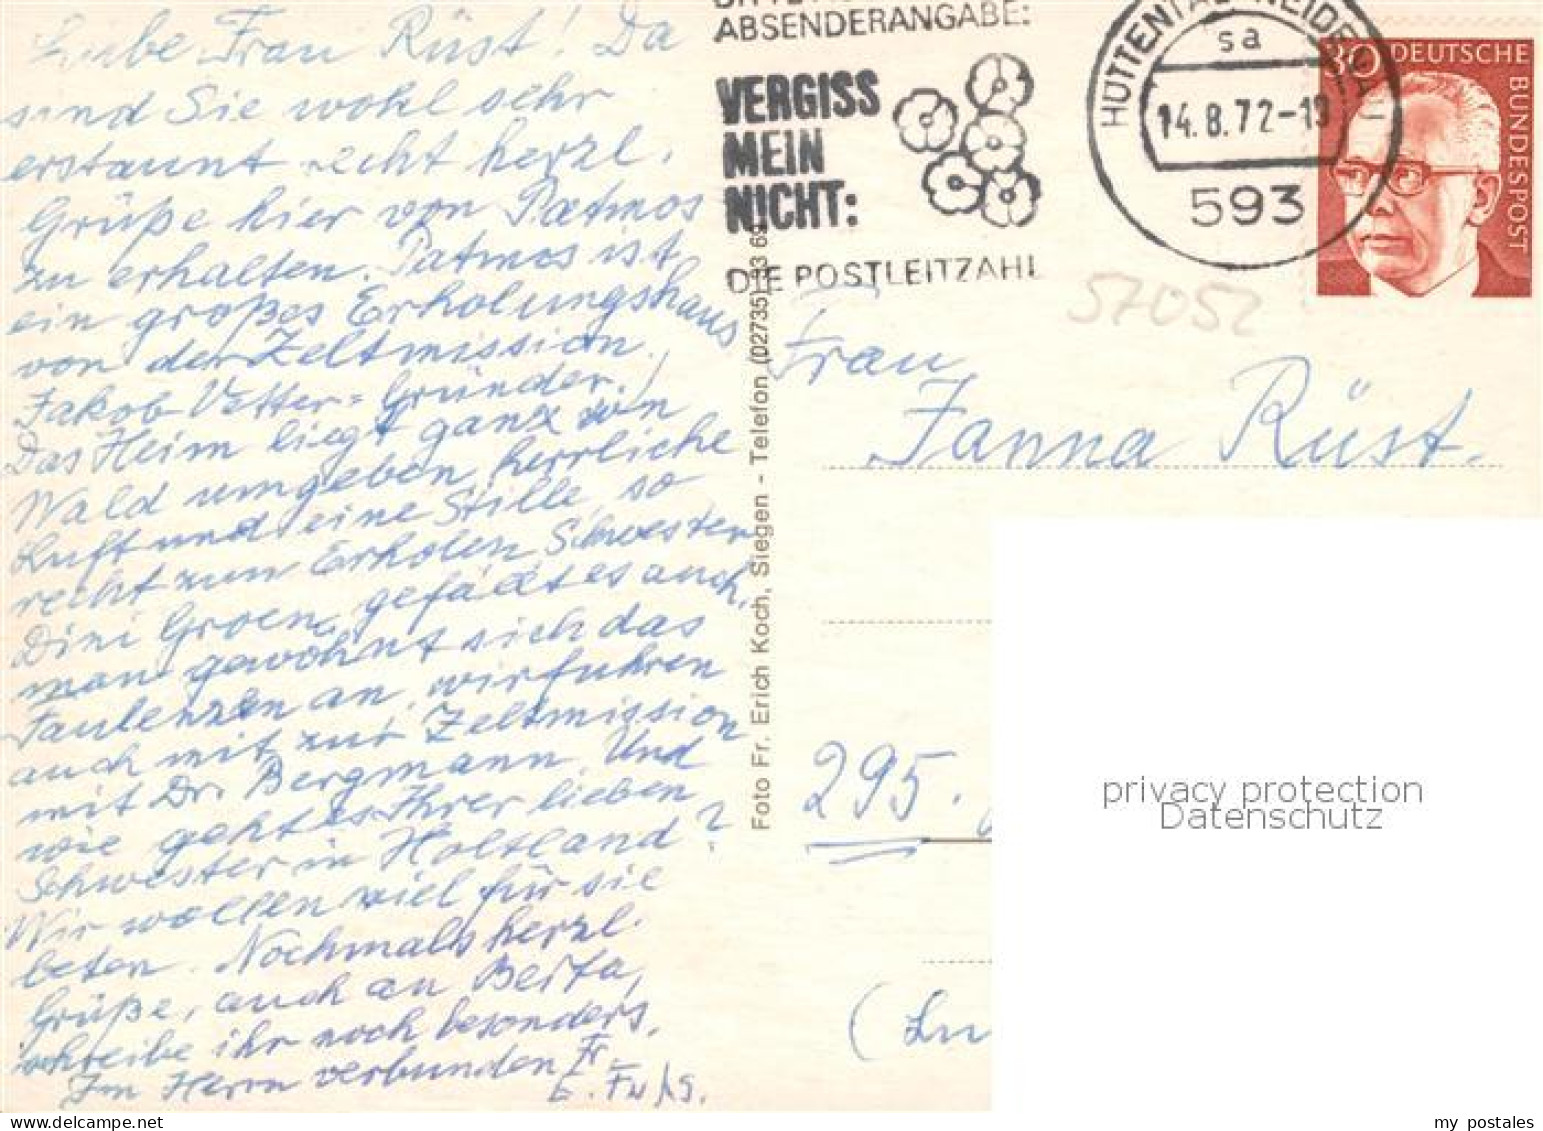 Liebe Frau Rüst! Da
sind Sie wohl sehr
erstaunt recht herzl.
Grüße hier von Patmos
zu erhalten. Patmos ist
ein großes Erholungshaus
von der Zeltmission.
Jakob Vetter = Gründer.
Das Heim liegt ganz im
Wald umgeben, herrliche
Luft und eine Stille, so
recht zum Erholen, Schwester
Dini Groen, gefällt es auch,
man gewöhnt sich das
Faulenzen an, wir fuhren
auch mit zur Zeltmission
mit Dr. Bergmann. Und
wie geht es Ihrer lieben
Schwester in Holtland?
Wir wollen viel für sie
beten. Nochmals herzl.
Grüße, auch an Berta,
schreibe ihr noch besonders.
Im Herrn verbunden Fr.
ABSENDERANGABE:
VERGISS
MEIN
NICHT:
DIE POSTLEITZAHL
sa
14.8.72-19
593
30 DEUTSCHE
BUNDESPOST
57052
Foto Fr. Erich Koch, Siegen - Telefon (02735)
Frau
Janna Rüst.
295.
privacy protection
Datenschutz
my postales